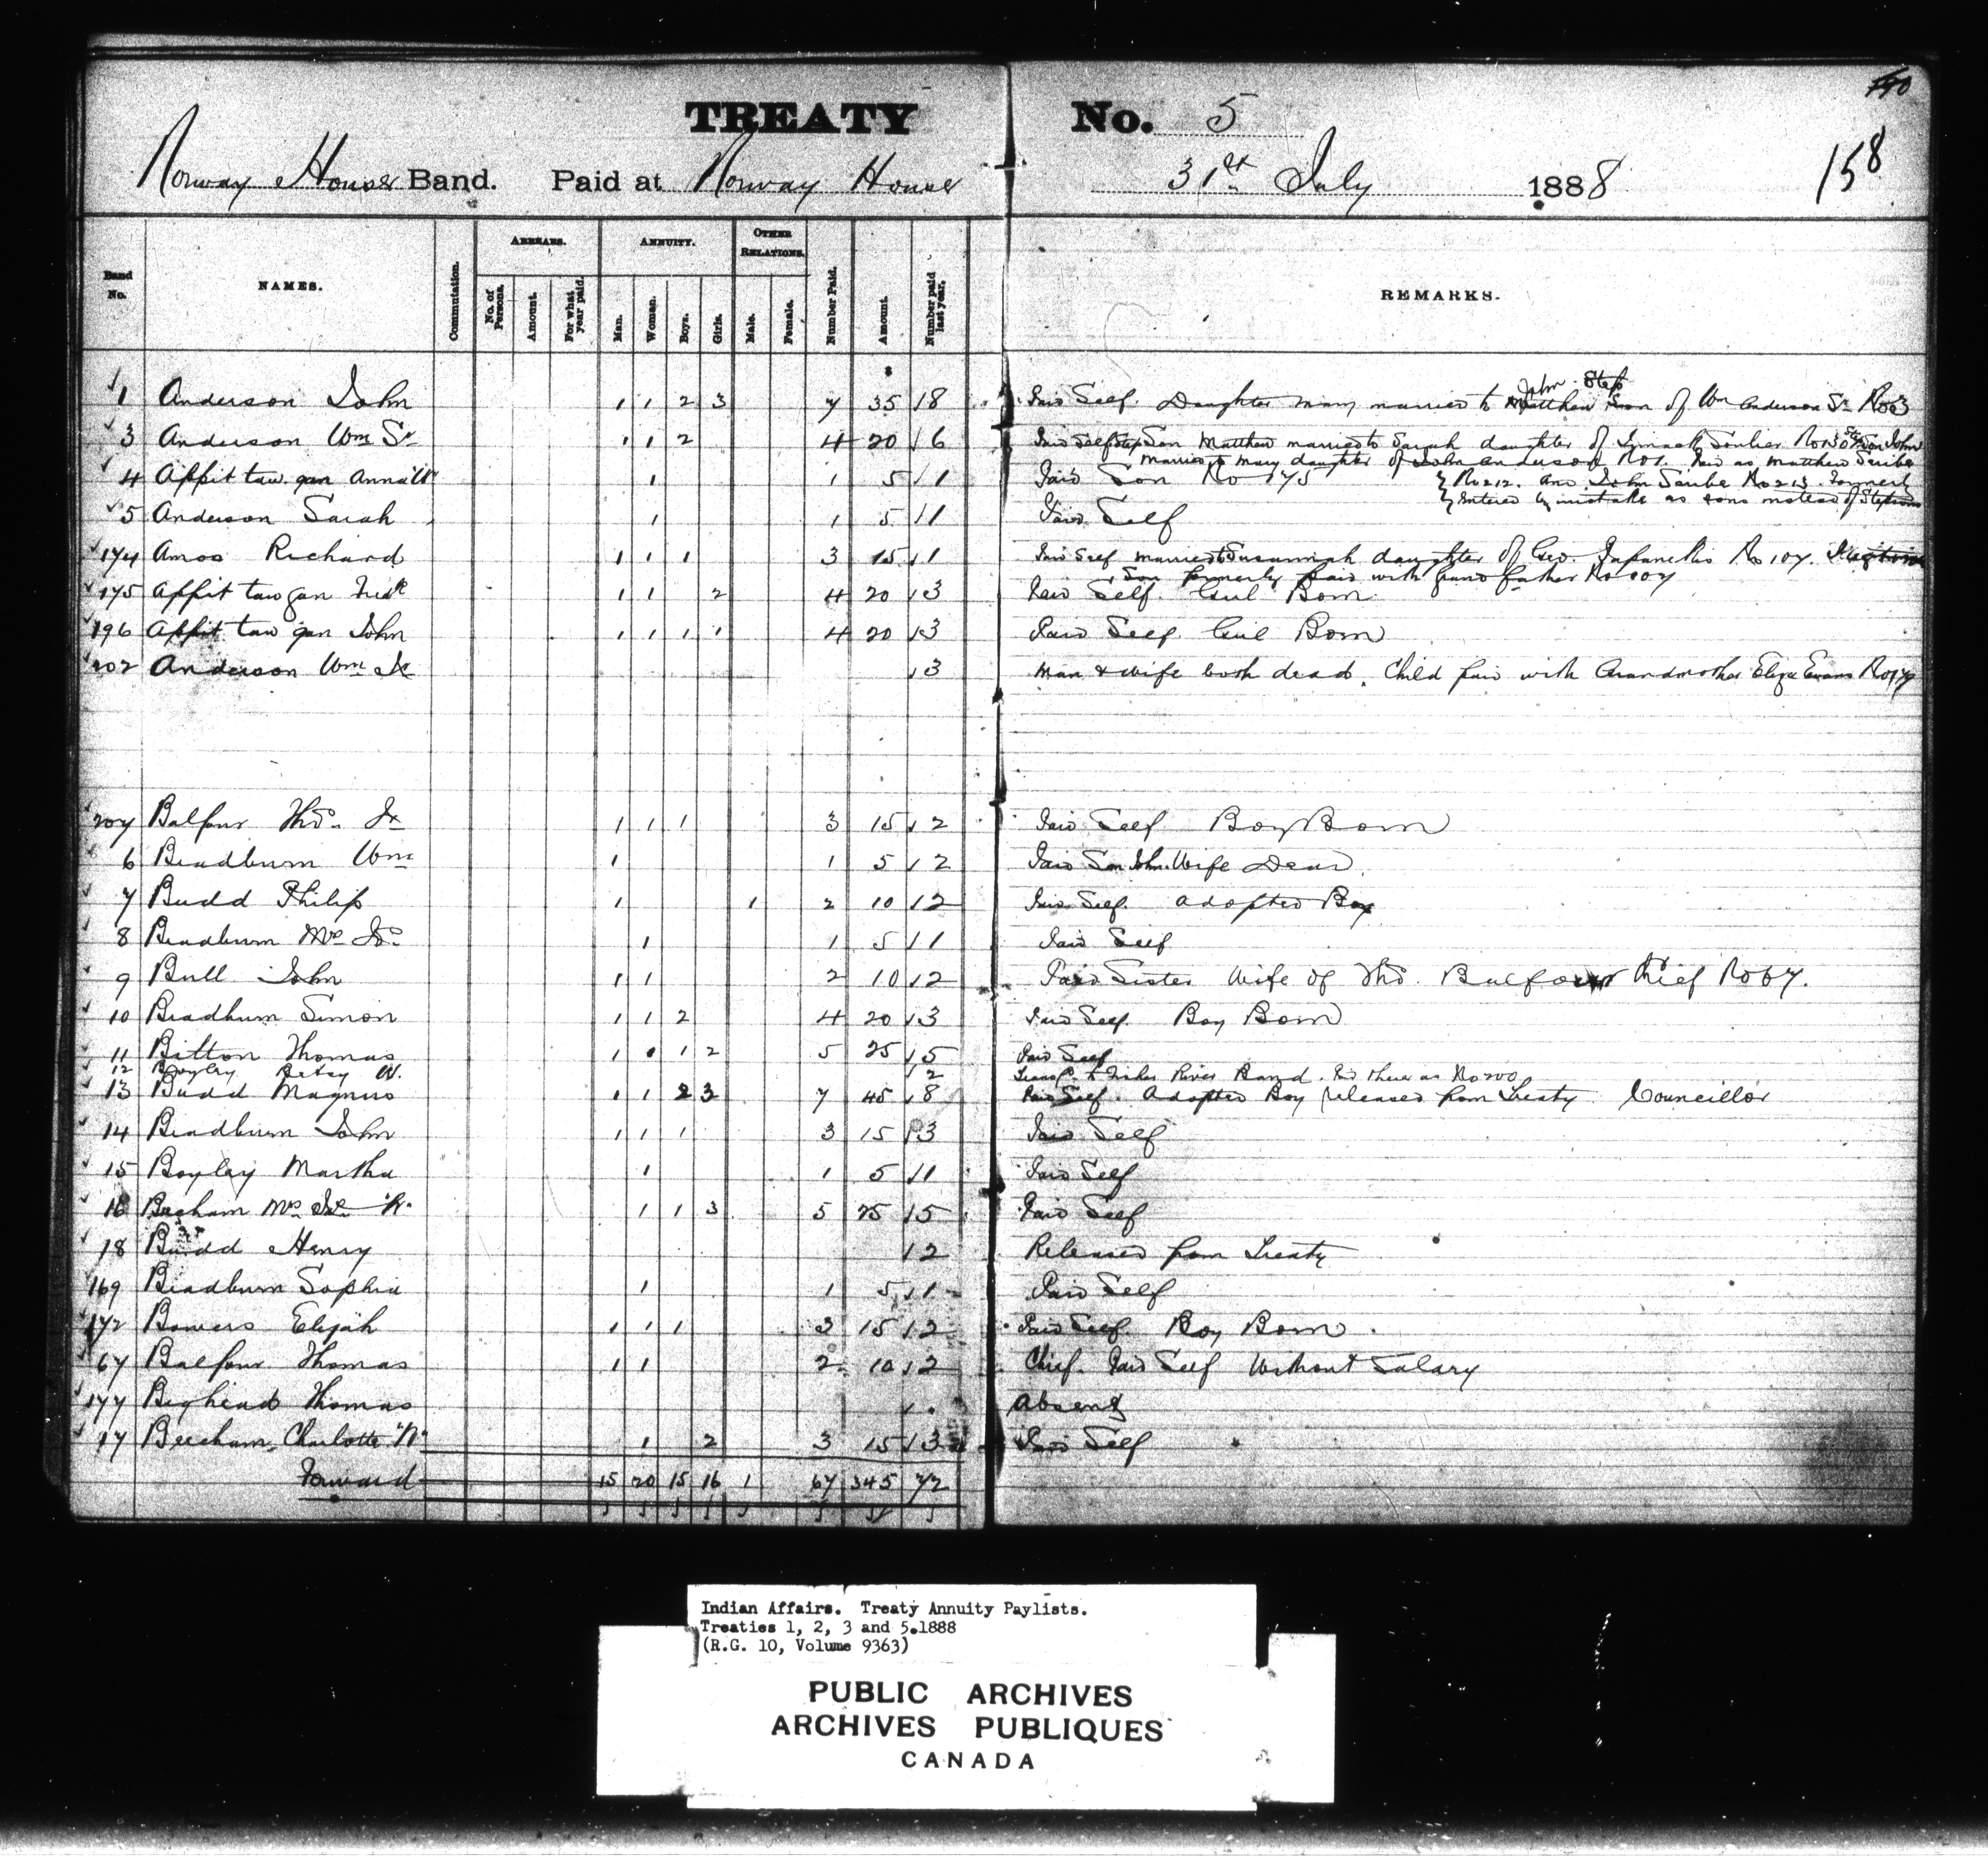 140
TREATY No. 5
158
Norway House Band. Paid at Norway House 31st July 1888
Band No. NAMES. Commutation. ARREARS. ANNUITY. OTHER RELATIONS. Number Paid. Amount. Number paid last year. REMARKS.
No. of Persons. Amount. For what year paid. Man. Woman. Boys. Girls. Male. Female.
$
1 Anderson John 1 1 2 3 7 35 8 Paid Self. Daughter Mary married to John Step Son of Wm Anderson Sr No 3
3 Anderson Wm Sr 1 1 2 4 20 6 Paid Self Step Son Matthew married to Sarah daughter of Soulier No 130 Step Son John
married to Mary daughter of John Anderson No 1. Paid as Matthew Scribe
4 Appit taw gan Anna W 1 1 5 1 Paid Son No 175 No 212. and John Scribe No 213. Formerly
entered by mistake as sons instead of Stepsons
5 Anderson Sarah 1 1 5 1 Paid Self
174 Amos Richard 1 1 1 3 15 1 Paid Self married to Susannah daughter of Geo. No 107.
Son formerly paid with grand father No 107
175 Appit taw gan Fredk 1 1 2 4 20 3 Paid Self. Girl Born
196 Appit taw gan John 1 1 1 1 4 20 3 Paid Self. Girl Born
202 Anderson Wm Jr 3 Man & wife both dead. Child paid with Grandmother Eliza Evans No 179
207 Balfour Thos. Jr 1 1 1 3 15 2 Paid Self Boy Born
6 Bradburn Wm 1 1 5 2 Paid Son John. Wife Dead.
7 Budd Philip 1 1 2 10 2 Paid Self. Adopted Boy
8 Bradburn Mrs Js. 1 1 5 1 Paid Self
9 Bull John 1 1 2 10 2 Paid Sister Wife of Thos. Balfour Chief No 67.
10 Bradburn Simon 1 1 2 4 20 3 Paid Self. Boy Born
11 Bitton Thomas 1 1 1 2 5 25 5 Paid Self
12 Boyley Betsy W. 2 Transf. to Fisher River Band. Pd there as No 200
13 Budd Magnus 1 1 2 3 7 45 8 Paid Self. Adopted Boy released from Treaty Councillor
14 Bradburn John 1 1 1 3 15 3 Paid Self
15 Boyley Martha 1 1 5 1 Paid Self
16 Beeham Mrs Jr W. 1 1 3 5 25 5 Paid Self
18 Budd Henry 2 Released from Treaty
169 Bradburn Sophia 1 1 5 1 Paid Self
172 Bowers Elijah 1 1 1 3 15 2 Paid Self. Boy Born.
67 Balfour Thomas 1 1 2 10 2 Chief. Paid Self Without Salary
177 Bighead Thomas Absent
17 Beecham, Charlotte W. 1 2 3 15 3 Paid Self
Forward 15 20 15 16 1 67 345 72
Indian Affairs. Treaty Annuity Paylists.
Treaties 1, 2, 3 and 5.1888
(R.G. 10, Volume 9363)
PUBLIC ARCHIVES
ARCHIVES PUBLIQUES
CANADA